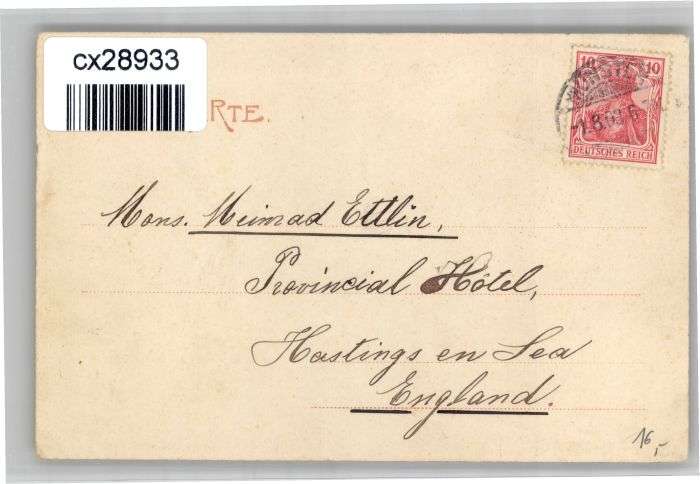 cx28933
RTE.
10 10
1.8.03.6
DEUTSCHES REICH
Mons. Meinrad Ettlin,
Provincial Hôtel,
Hastings en Sea
England.
16,-